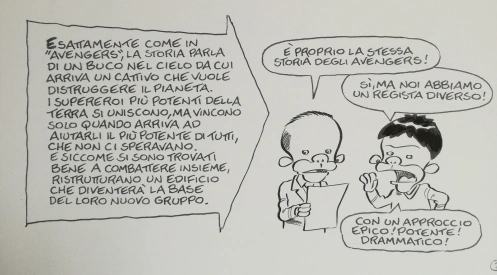 ESATTAMENTE COME IN
"AVENGERS", LA STORIA PARLA
DI UN BUCO NEL CIELO DA CUI
ARRIVA UN CATTIVO CHE VUOLE
DISTRUGGERE IL PIANETA.
I SUPEREROI PIÙ POTENTI DELLA
TERRA SI UNISCONO, MA VINCONO
SOLO QUANDO ARRIVA AD
AIUTARLI IL PIÙ POTENTE DI TUTTI,
CHE NON CI SPERAVANO.
E SICCOME SI SONO TROVATI
BENE A COMBATTERE INSIEME,
RISTRUTTURANO UN EDIFICIO
CHE DIVENTERÀ LA BASE
DEL LORO NUOVO GRUPPO.
È PROPRIO LA STESSA
STORIA DEGLI AVENGERS!
SÌ, MA NOI ABBIAMO
UN REGISTA DIVERSO!
CON UN APPROCCIO
EPICO! POTENTE!
DRAMMATICO!